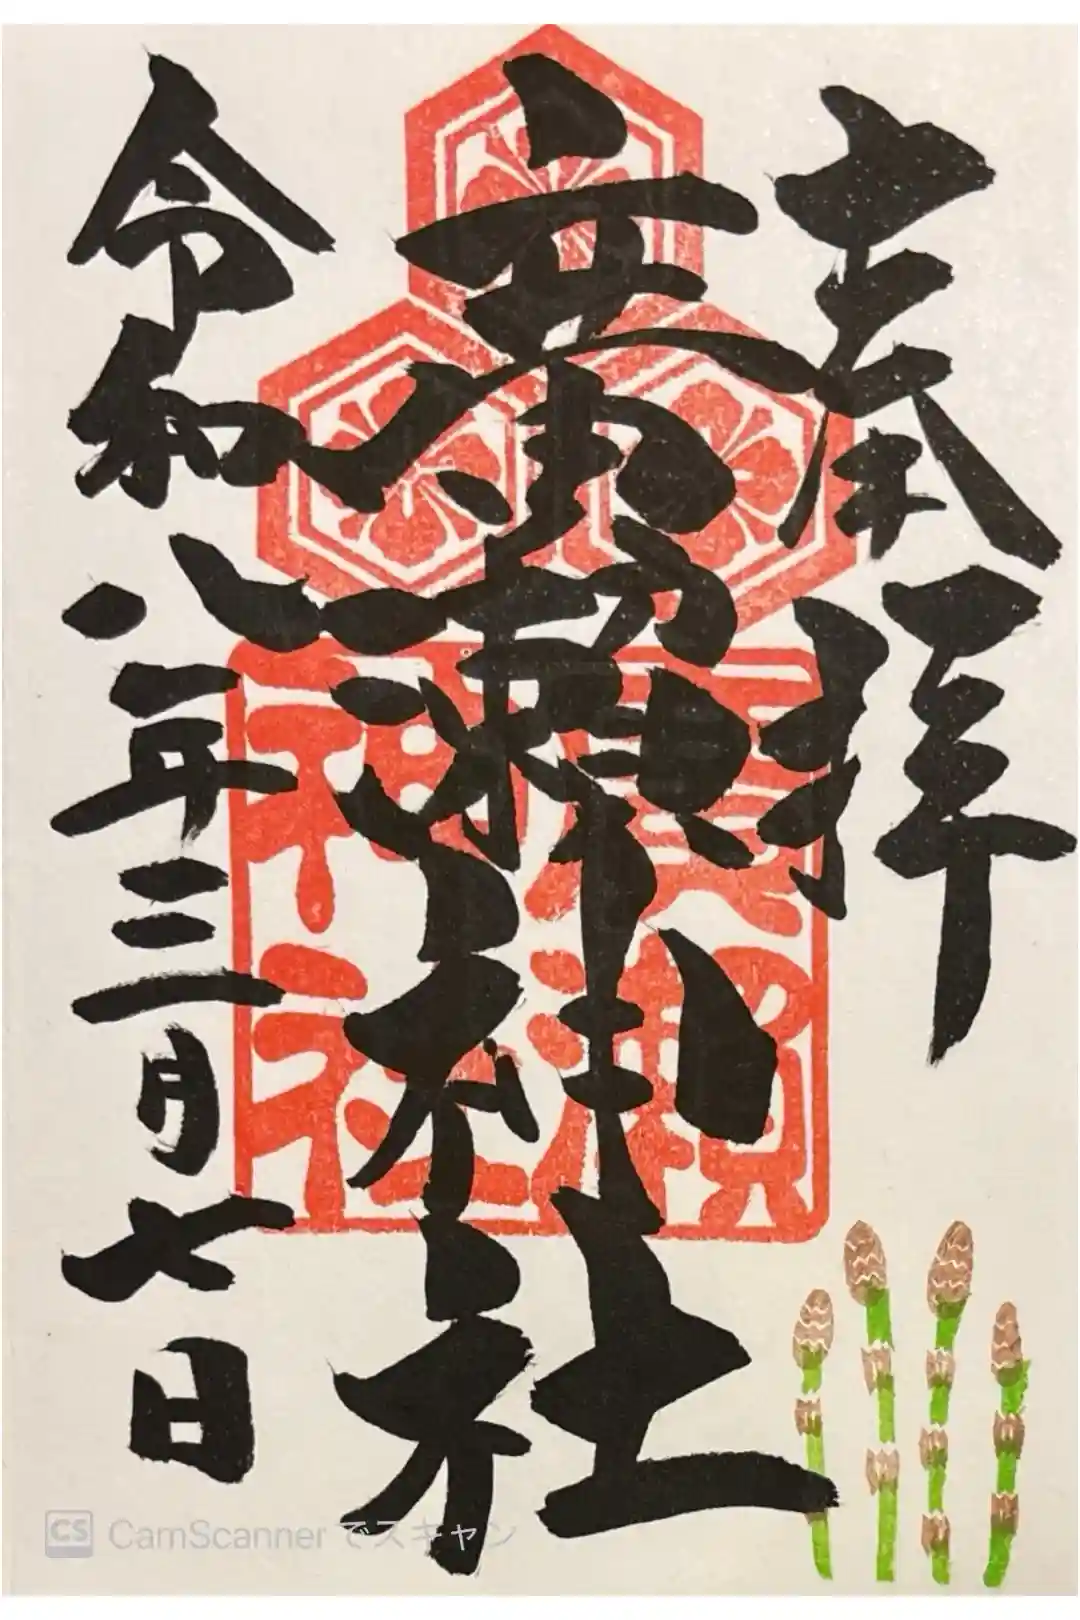 奉拝
廣瀨神社
令和八年三月七日
廣瀨
神社
CS CamScanner でスキャン